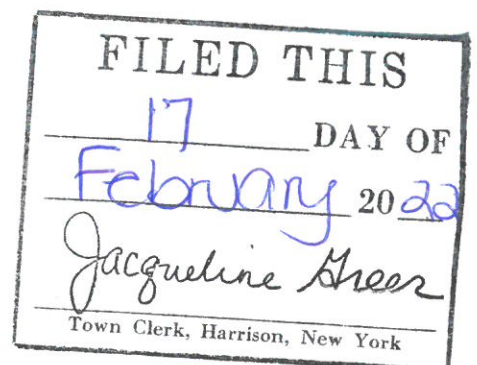 FILED THIS
17 DAY OF
February 20 22
Jacqueline Greer
Town Clerk, Harrison, New York